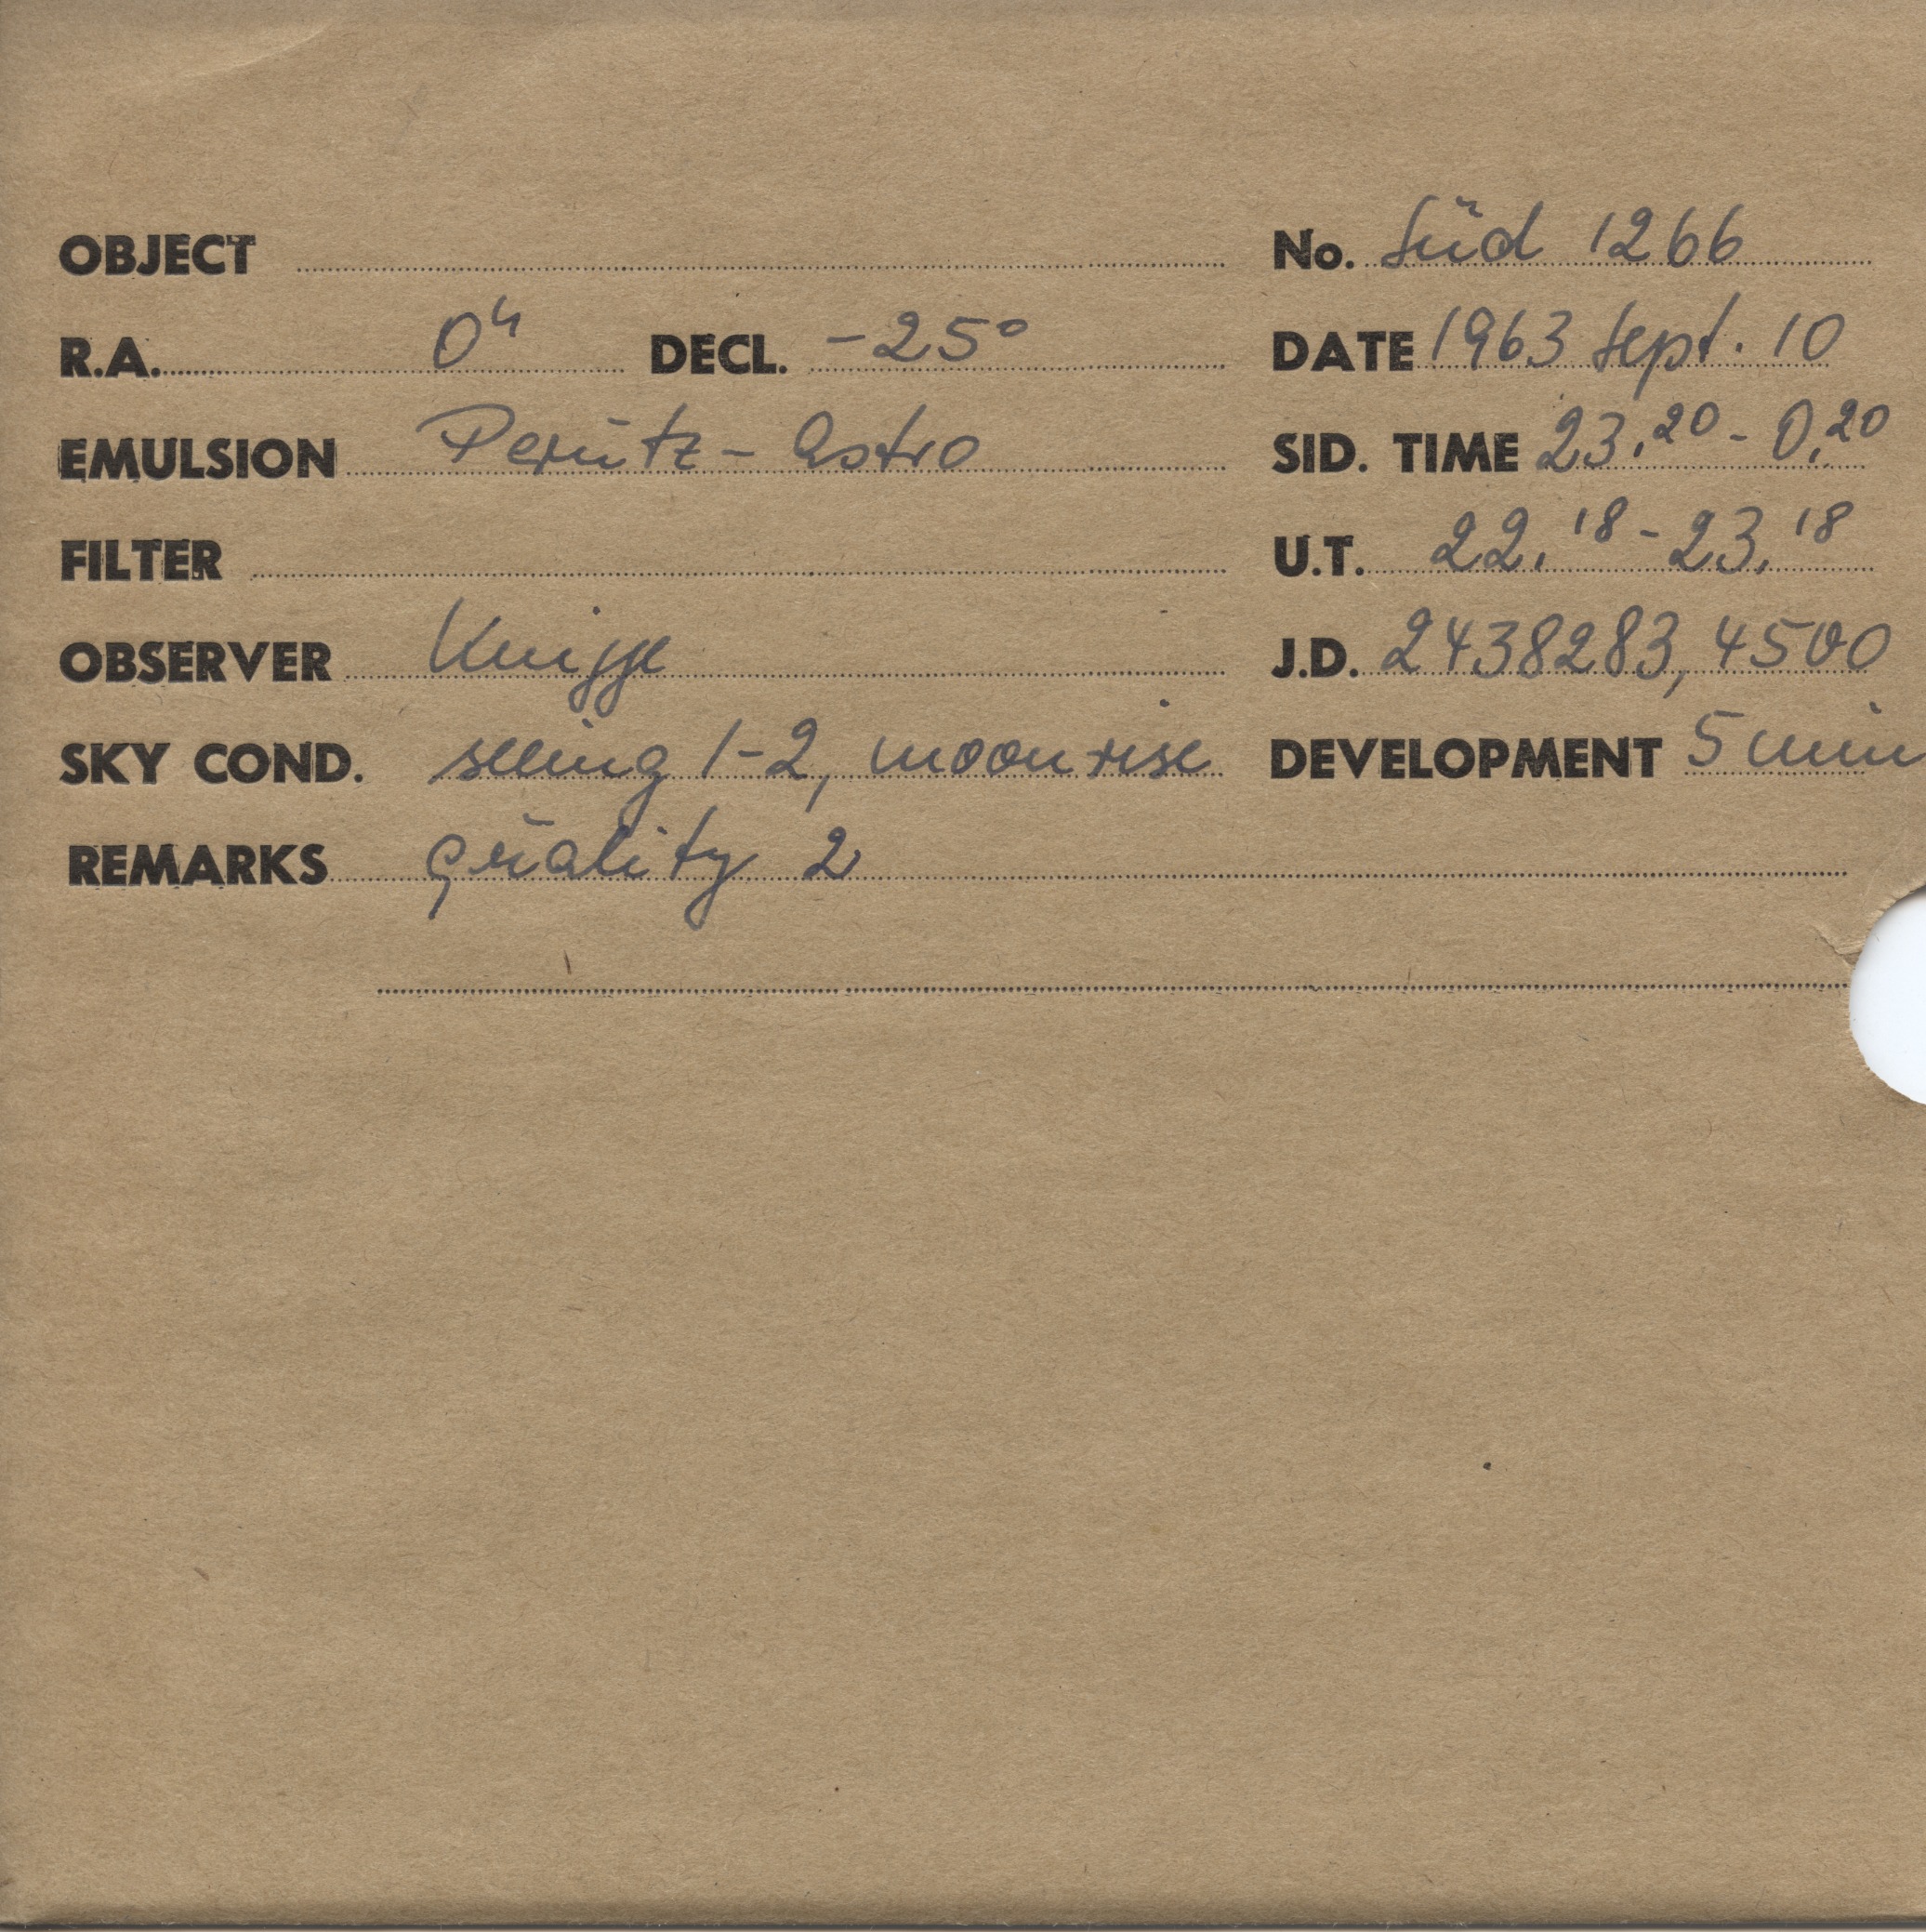 OBJECT No. Süd 1266
R.A. 0h DECL. -25° DATE 1963 Sept. 10
EMULSION Perutz - Astro SID. TIME 23.20 - 0.20
FILTER U.T. 22.18 - 23.18
OBSERVER Knigge J.D. 2438283,4500
SKY COND. seeing 1-2, moonrise DEVELOPMENT 5 min
REMARKS quality 2